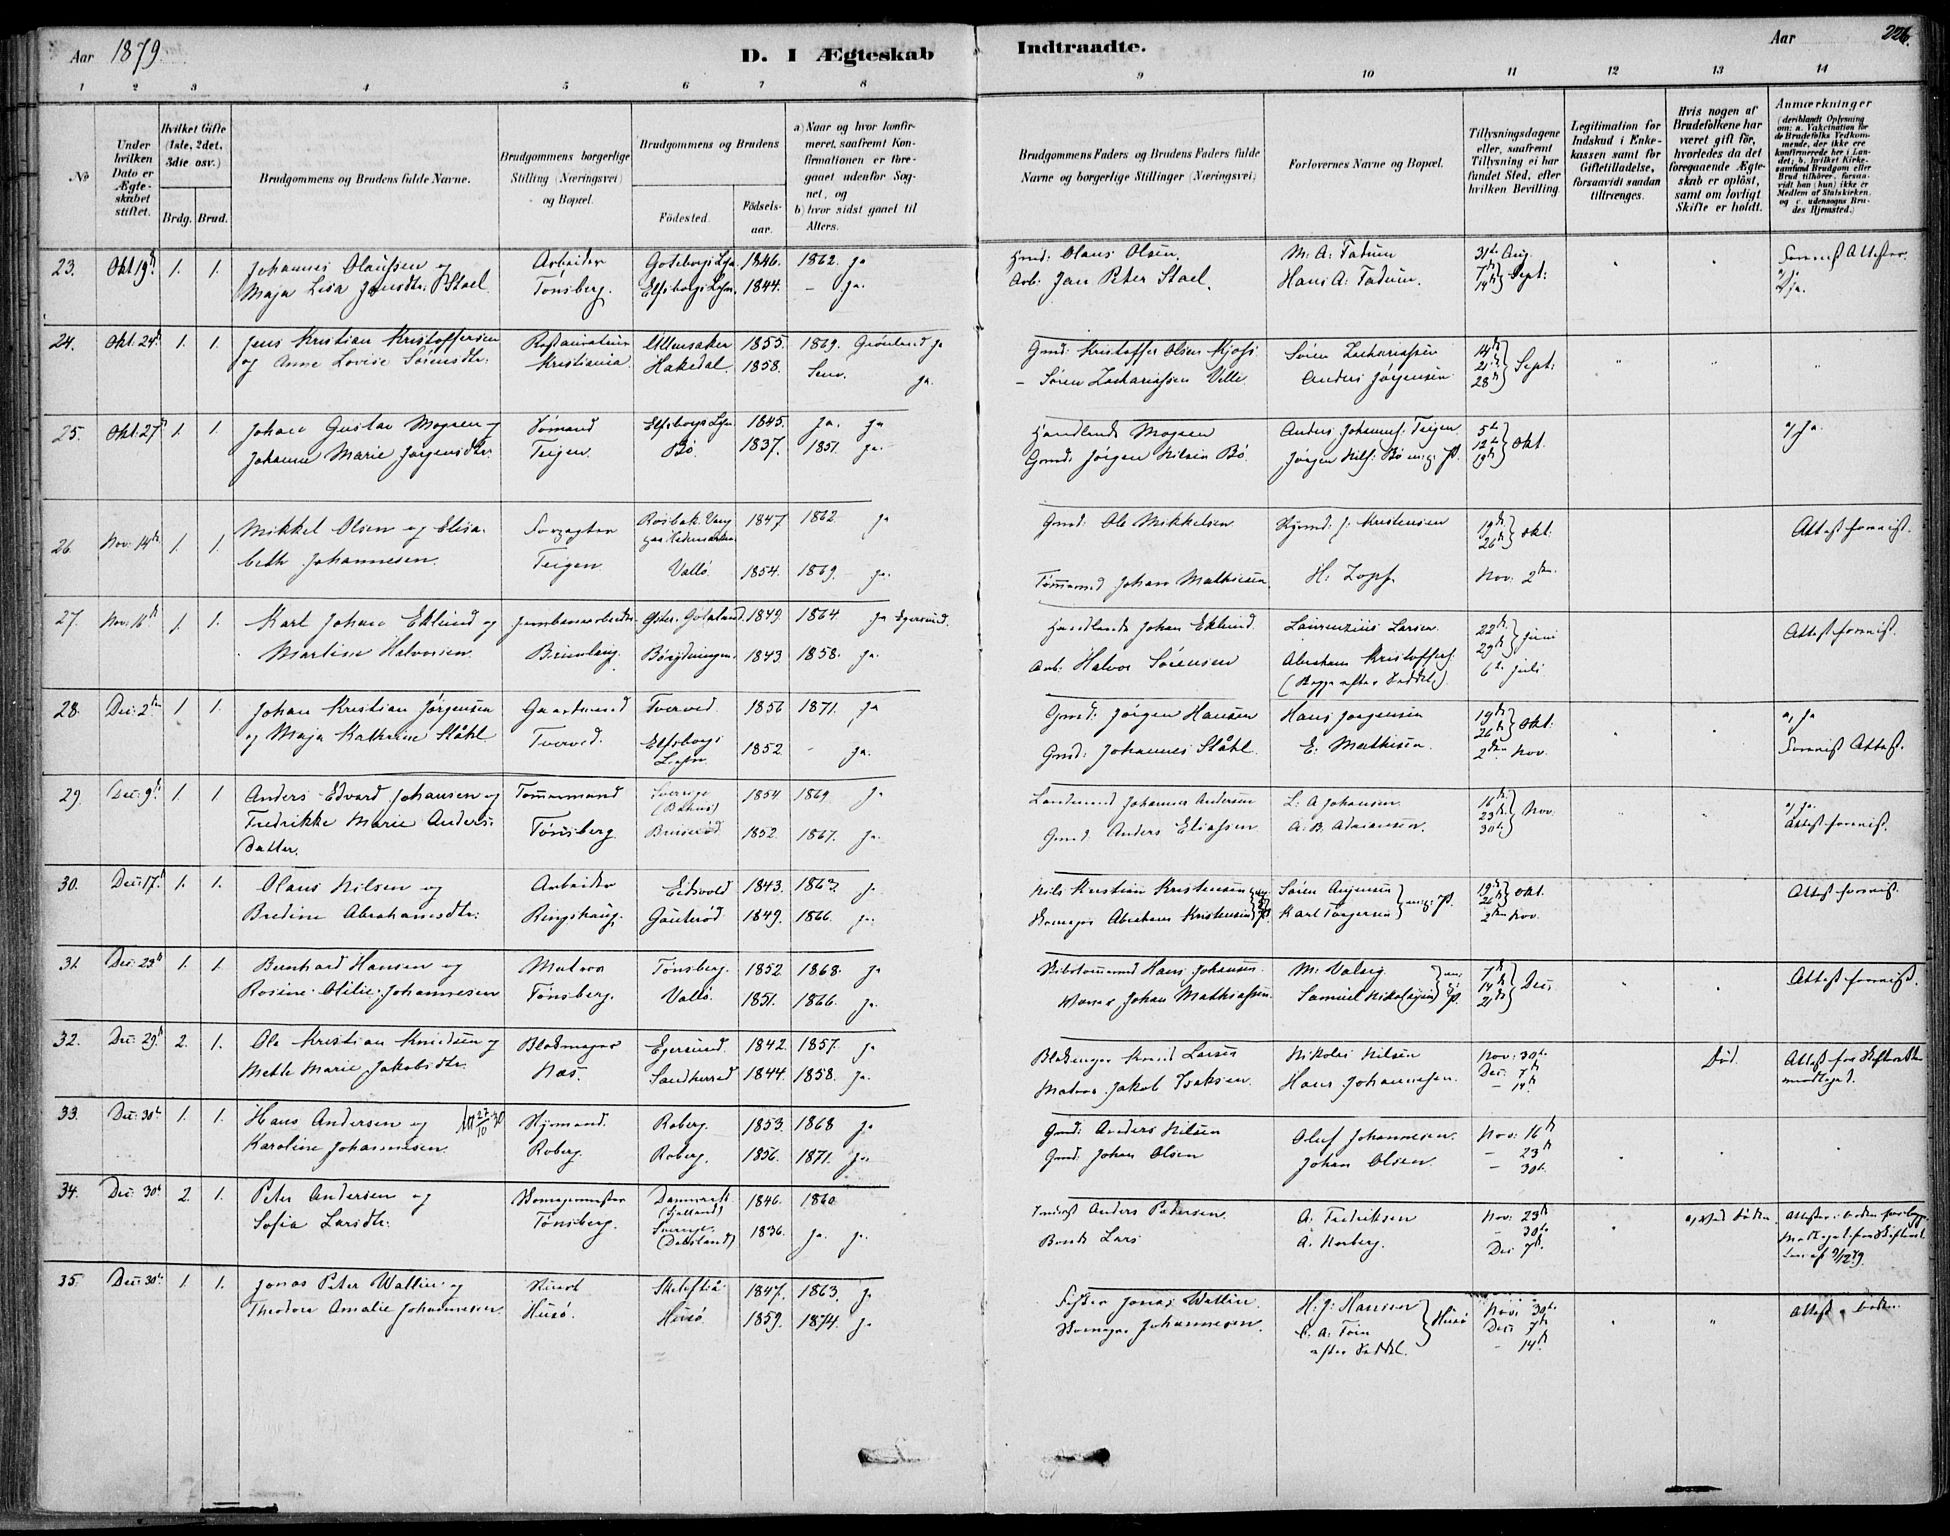 Aar 1879.
D. I Ægteskab
Indtraadte.
Aar
226.
1 2 3 4 5 6 7 8 9 10 11 12 13 14
No
Under hvilken Dato er Ægteskabet stiftet.
Hvilket Gifte (1ste, 2det, 3die osv.)
Brdg. Brud.
Brudgommens og Brudens fulde Navne.
Brudgommens borgerlige Stilling (Næringsvei) og Bopæl.
Brudgommens og Brudens
Fødested.
Fødselsaar.
a) Naar og hvor konfirmeret, saafremt Konfirmationen er foregaaet udenfor Sognet, og
b) hvor sidst gaaet til Alters.
Brudgommens Faders og Brudens Faders fulde Navne og borgerlige Stillinger (Næringsvei)
Forlovernes Navne og Bopæl.
Tillysningsdagene eller, saafremt Tillysning ei har fundet Sted, efter hvilken Bevilling.
Legitimation for Indskud i Enkekassen samt for Giftetilladelse, forsaavidt saadan tiltrænges.
Hvis nogen af Brudefolkene har været gift før, hvorledes da det foregaaende Ægteskab er opløst, samt om lovligt Skifte er holdt.
Anmærkninger
(deriblandt Oplysning om: a. Vakcination for de Brudefolks Vedkommende, der ikke ere konfirmerede her i Landet; b. hvilket Kirkesamfund Brudgom eller Brud tilhører, forsaavidt han (hun) ikke er Medlem af Statskirken, og c. udensogns Brudes Hjemsted.)
23. Okt 19d 1. 1. Johannes Olaussen og Arbeider Goteborgs Lehn 1846. 1862. ja Gmd: Olaus Olsen. M: A: Fadum 31te Aug.
Maja Lisa Jansdtr. Stael Tønsberg. Elfsborgs Lehn. 1844. – ja. Arb. Jan Peter Stael. Hans A: Fadum. 7de 14de } Sept: ja.
24. Okt. 24d 1. 1. Jens Kristian Kristoffersen Restauratør Ullensaker 1855. 1869. Grønland ja Gmd: Kristoffer Olsen Søren Zachariassen 14de
og Anne Lovise Sørensdtr. Kristiania. Hakedal. 1858. Sem. ja. – Søren Zachariassen Velle. Anders Jørgensen 21de 28de } Sept:
25. Okt. 27d 1. 1. Johan Gustav Mogren og Sømand Elfsborgs Lehn 1845. ja. ja Handlende Mogren Anders Johannes. Teigen 5te a, ja.
Johanne Marie Jørgensdtr. Teigen. Bø. 1837. 1851. ja. Gmd: Jørgen Nilsen Bø. Jørgen Nils: Bø m: P. 12te 19de } Okt
26 Nov: 14de 1. 1. Mikkel Olsen og Elisa- Forpagter 1847. 1862 ja Gmd: Ole Mikkelsen J: Kristensen 19de 26de } Okt: Attest forevist.
beth Johannesen. Teigen. Vallø. 1854. 1869. ja. Tømmermd Johan Mathiesen. H: Zopf. Nov: 2den
27. Nov: 16de 1. 1. Karl Johan Eklund og Jernbanearbeider Øster-Götaland. 1849. 1864. ja Egersund. Handlende Johan Eklund. Laurenzius Larsen 22de 29de } Juni Attest forevist.
Martine Halvorsen. 1843 1858. ja. Arb: Halvor Sørensen Abraham Kristoffers. 6te juli
(Begge efter Seddel.)
28. Dec: 2den 1. 1. Johan Kristian Jørgensen Gaardmand Tverved. 1856 1871. ja Gmd: Jørgen Hansen Hans Jørgensen 19de 26de } Okt: a, ja
og Maja Kathrine Ståhl Tverved. Elfsborgs Lehn. 1852. – ja. Gmd: Johannes Ståhl. E: Mathisen. 2den Nov. Forevist Attest.
29. Dec: 9de 1. 1 Anders Edvard Johansen og Tømmermand Sverige (Bahus) 1854. 1869. ja Landmand Johannes Andersen L: A Johansen. 16de a, ja.
Fredrikke Marie Anders- Tønsberg. 1852. 1867. ja. Gmd: Anders Eliassen A: B. Adriansen. 23de 30te } Nov. Attest forevist.
Datter.
30. Dec: 17de 1. 1. Olaus Nilsen og Arbeider Eidsvold 1843. 1863. ja. Nils Kristian Kristensen Søren 19de 26de } Okt Attest forevist.
Bredine Abrahamsdtr: Ringshaug. Gauterød 1849. 1866. ja. Skomager Abraham Kristensen Karl Torgersen } 2den Nov.
31. Dec: 23de 1. 1. Bernhard Hansen og Matros Tønsberg. 1852. 1868. ja Skibstømmermd Hans Johansen. M: Valvig 7de Attest forevist.
Rosine Otilie Johannesen Tønsberg. Vallø. 1851. 1866. ja. Johan Mathiassen. Samuel Nikolaysen 14de 21de } Dec:
32. Dec: 29de 2. 1. Ole Kristian Knudsen og Blokmager Egersund. 1842. 1857. ja Blokmager Knud Larsen Nikolai Nilsen Nov: 30te Død. Attest fra Skifteretten
Mette Marie Jakobsdtr. Nes. Sandherred 1844. 1858. ja. Matros Jakob Isaksen. Hans Johannesen. Dec: 7de – 14de modtaget.
33. Dec: 30te 1. 1. Hans Andersen og 27/10 30 Roberg. 1853. 1868 ja Gmd: Anders Nilsen Oluf Johannesen. Nov: 16de
Karoline Johannesen. Roberg. Roberg. 1856. 1871. ja. Gmd: Johan Olsen Johan Olsen. – 23de – 30te
34. Dec: 30te 2. 1. Peter Andersen og Skomagermester Danmark (Jylland) 1846. 1860. Anders Pedersen. A: Fredriksen Nov: 23de a, Ved Døden.
Sofia Larsdtr: Tønsberg. Sverige (Dalsland) 1836. ja. ja. Bonde Lars A: Norberg. – 30te Dec: 7de
35. Dec: 30te 1. 1. Jonas Peter Wallin og Skelefteå 1847. 1863. ja Jonas Wallin. H: J: Hansen Nov: 30te
Theodora Amalie Johannesen. Husø. Husø. 1859. 1874. ja Skomager Johannesen. } Husø Dec: 7de
efter Seddel. – 14de